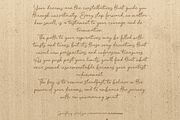 Your dreams are the constellations that guide you
through uncertainty. Every step forward, no matter
how small, is a testament to your courage and
determination
The path to your aspirations may be filled with
twists and turns, but it's these very deviations that
reveal new perspectives and unforeseen strengths.
As you push past your limits, you'll find that what
once seemed insurmountable becomes your greatest
achievement.
The key is to remain steadfast in belief in the
power of your dreams and to embrace the journey
with an unwavering spirit